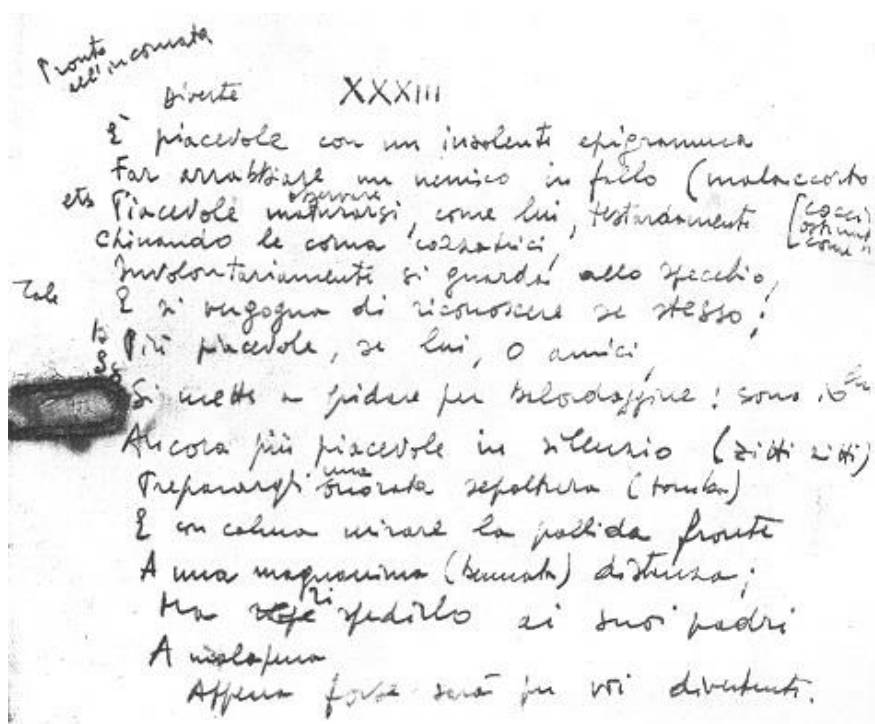 Pronto
all'incornata
Diverte XXXIII
È piacevole con un insolente epigramma
Far arrabbiare un nemico in fallo (malaccorto
osservare
Piacevole maturarsi, come lui, testardamente
chinando le corna cozzatrici,
Involontariamente si guarda allo specchio,
Tale
E si vergogna di riconoscere se stesso;
Più piacevole, se lui, o amici,
Si mette a gridare per balordaggine: sono io
Ancora più piacevole in silenzio (zitti zitti)
una
Preparargli onorata sepoltura (tomba)
E con calma mirare la pallida fronte
A una magnanima distanza;
Ma spedirlo ai suoi padri
A malapena
Appena forse sarà per voi divertente.